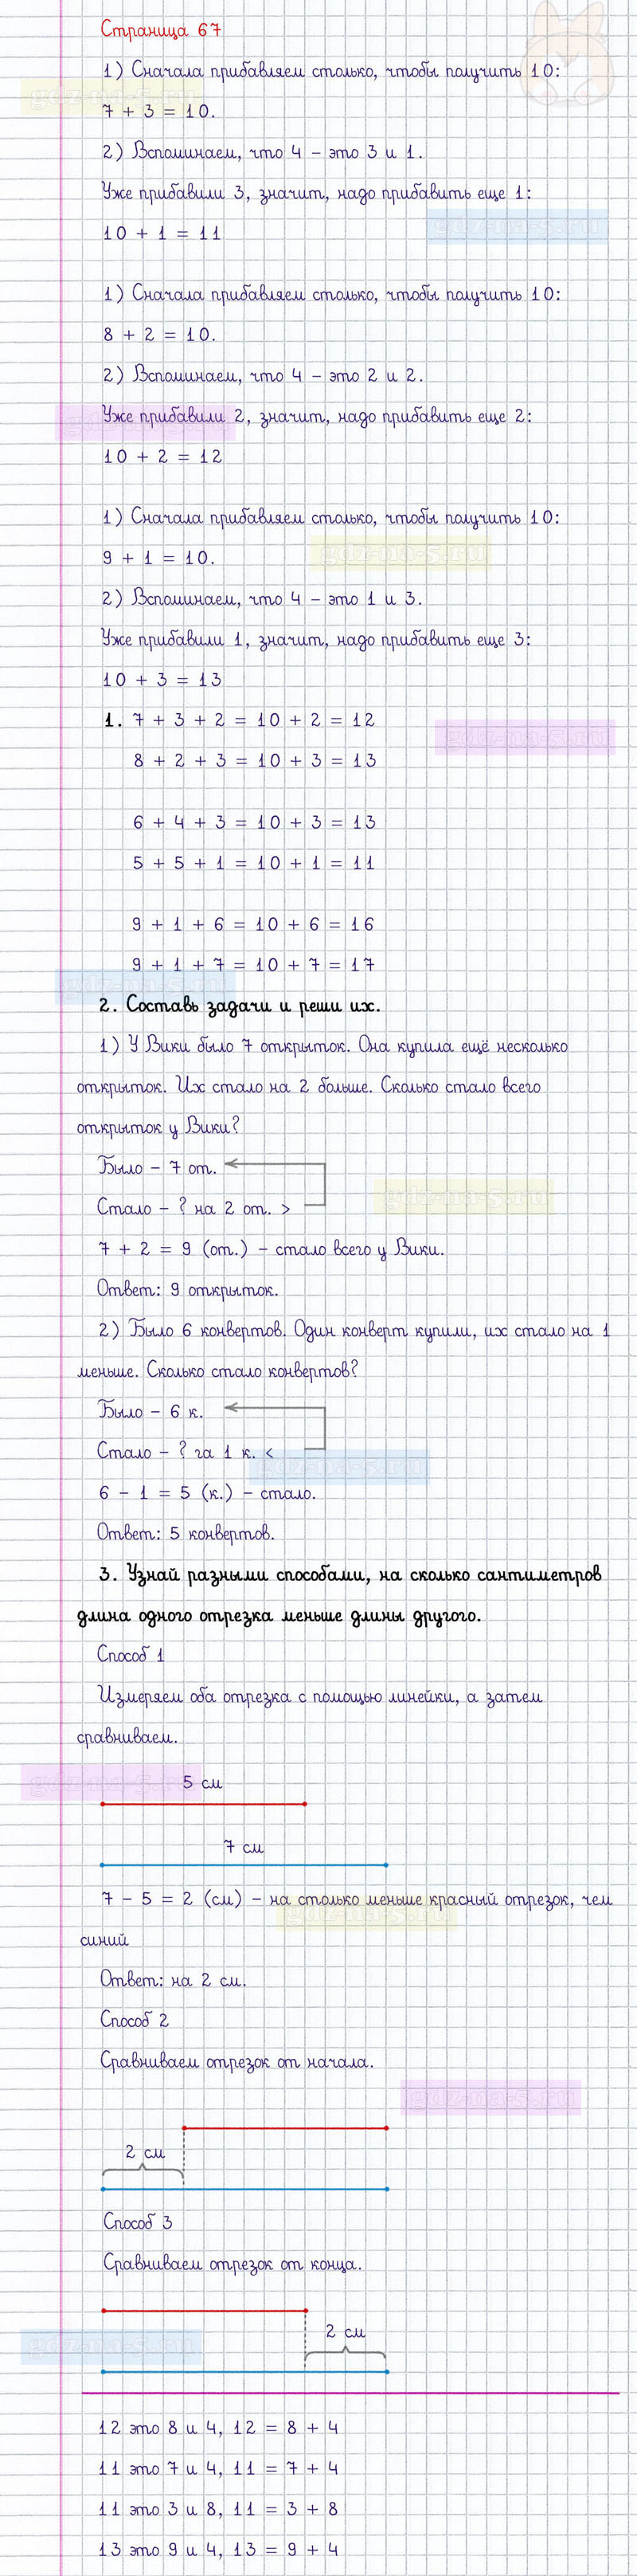 Страница 67
1) Сначала прибавляем столько, чтобы получить 10:
gdz-na-5.ru
7 + 3 = 10.
2) Вспоминаем, что 4 – это 3 и 1.
Уже прибавили 3, значит, надо прибавить еще 1:
gdz-na-5.ru
10 + 1 = 11
1) Сначала прибавляем столько, чтобы получить 10:
8 + 2 = 10.
2) Вспоминаем, что 4 – это 2 и 2.
Уже прибавили 2, значит, надо прибавить еще 2:
gdz-na-5.ru
10 + 2 = 12
1) Сначала прибавляем столько, чтобы получить 10:
gdz-na-5.ru
9 + 1 = 10.
2) Вспоминаем, что 4 – это 1 и 3.
Уже прибавили 1, значит, надо прибавить еще 3:
10 + 3 = 13
1. 7 + 3 + 2 = 10 + 2 = 12
gdz-na-5.ru
8 + 2 + 3 = 10 + 3 = 13
6 + 4 + 3 = 10 + 3 = 13
5 + 5 + 1 = 10 + 1 = 11
9 + 1 + 6 = 10 + 6 = 16
9 + 1 + 7 = 10 + 7 = 17
gdz-na-5.ru
2. Составь задачи и реши их.
1) У Вики было 7 открыток. Она купила ещё несколько
открыток. Их стало на 2 больше. Сколько стало всего
открыток у Вики?
Было – 7 от.
gdz-na-5.ru
Стало – ? на 2 от. >
7 + 2 = 9 (от.) – стало всего у Вики.
Ответ: 9 открыток.
2) Было 6 конвертов. Один конверт купили, их стало на 1
меньше. Сколько стало конвертов?
Было – 6 к.
Стало – ? га 1 к. <
gdz-na-5.ru
6 - 1 = 5 (к.) – стало.
Ответ: 5 конвертов.
3. Узнай разными способами, на сколько сантиметров
длина одного отрезка меньше длины другого.
Способ 1
Измеряем оба отрезка с помощью линейки, а затем
сравниваем.
gdz-na-5.ru
5 см
7 см
7 - 5 = 2 (см) – на столько меньше красный отрезок, чем
gdz-na-5.ru
синий
Ответ: на 2 см.
Способ 2
Сравниваем отрезок от начала.
gdz-na-5.ru
2 см
Способ 3
Сравниваем отрезок от конца.
2 см
gdz-na-5.ru
12 это 8 и 4, 12 = 8 + 4
11 это 7 и 4, 11 = 7 + 4
11 это 3 и 8, 11 = 3 + 8
13 это 9 и 4, 13 = 9 + 4